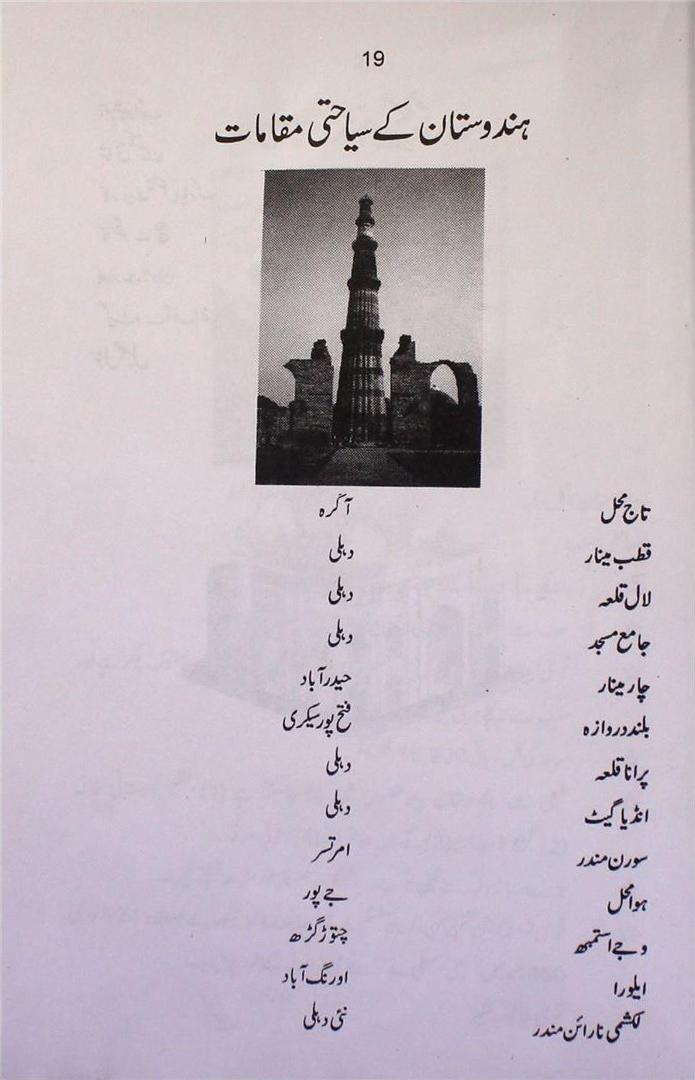 19
ہندوستان کے سیاحتی مقامات
تاج محل آگرہ
قطب مینار دہلی
لال قلعہ دہلی
جامع مسجد دہلی
چار مینار حیدرآباد
بلند دروازہ فتح پور سیکری
پرانا قلعہ دہلی
انڈیا گیٹ دہلی
سورن مندر امرتسر
ہوا محل جے پور
وجے استمبھ چتوڑگڑھ
ایلورا اورنگ آباد
لکشمی نارائن مندر نئی دہلی